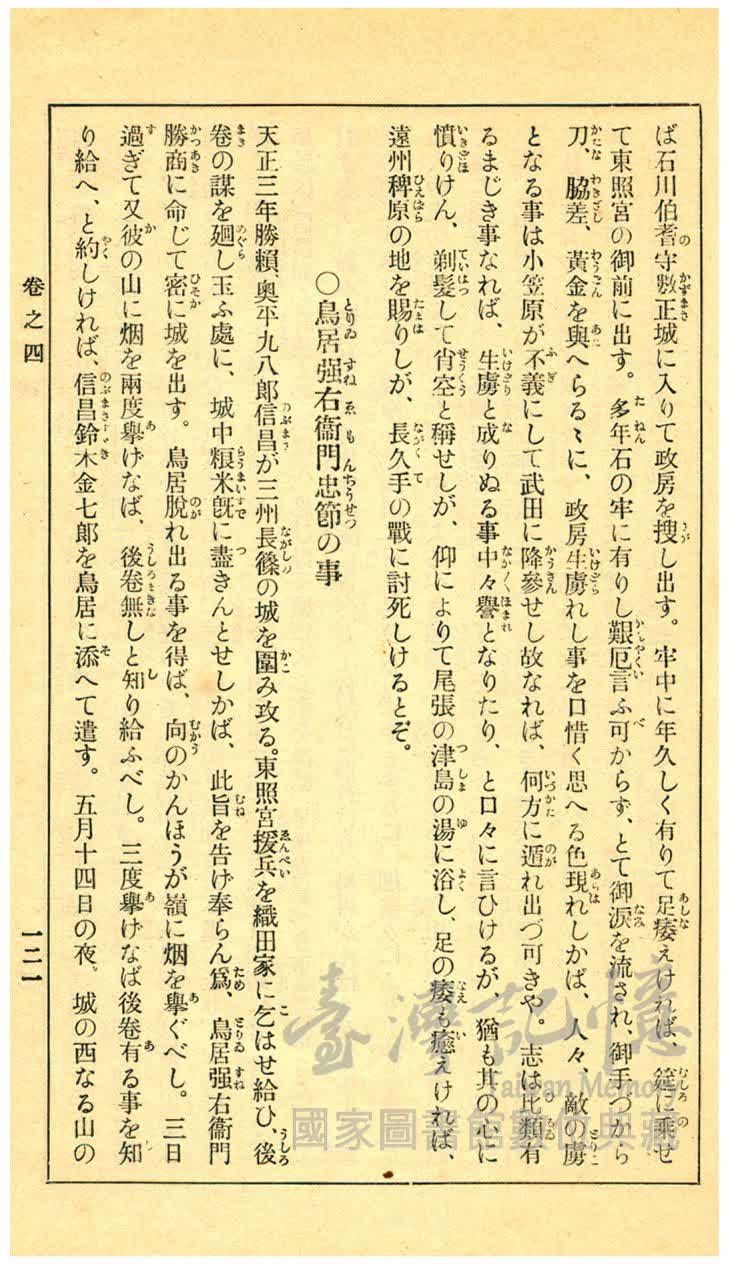 ば石川伯耆守數正城に入りて政房を搜し出す。牢中に年久しく有りて足痿えければ、筵に乘せ
て東照宮の御前に出す。多年石の牢に有りし艱厄言ふ可からず、とて御淚を流され、御手づから
刀、脇差、黃金を與へらるゝに、政房生虜れし事を口惜く思へる色現れしかば、人々、敵の虜
となる事は小笠原が不義にして武田に降參せし故なれば、何方に遁れ出づ可きや。志は比類有
るまじき事なれば、生虜と成りぬる事中々譽となりたり、と口々に言ひけるが、猶も其の心に
憤りけん、剃髮して宵空と稱せしが、仰によりて尾張の津島の湯に浴し、足の痿も癒えければ、
遠州稗原の地を賜りしが、長久手の戰に討死しけるとぞ。
〇鳥居强右衞門忠節の事
天正三年勝賴、奧平九八郞信昌が三州長篠の城を圍み攻る。東照宮援兵を織田家に乞はせ給ひ、後
卷の謀を廻し玉ふ處に、城中粮米旣に盡きんとせしかば、此旨を告げ奉らん爲、鳥居强右衞門
勝商に命じて密に城を出す。鳥居脫れ出る事を得ば、向のかんほうが嶺に烟を擧ぐべし。三日
過ぎて又彼の山に烟を兩度擧げなば、後卷無しと知り給ふべし。三度擧げなば後卷有る事を知
り給へ、と約しければ、信昌鈴木金七郞を鳥居に添へて遣す。五月十四日の夜。城の西なる山の
卷之四
一二一
臺灣記憶
Taiwan Memory
國家圖書館數位典藏